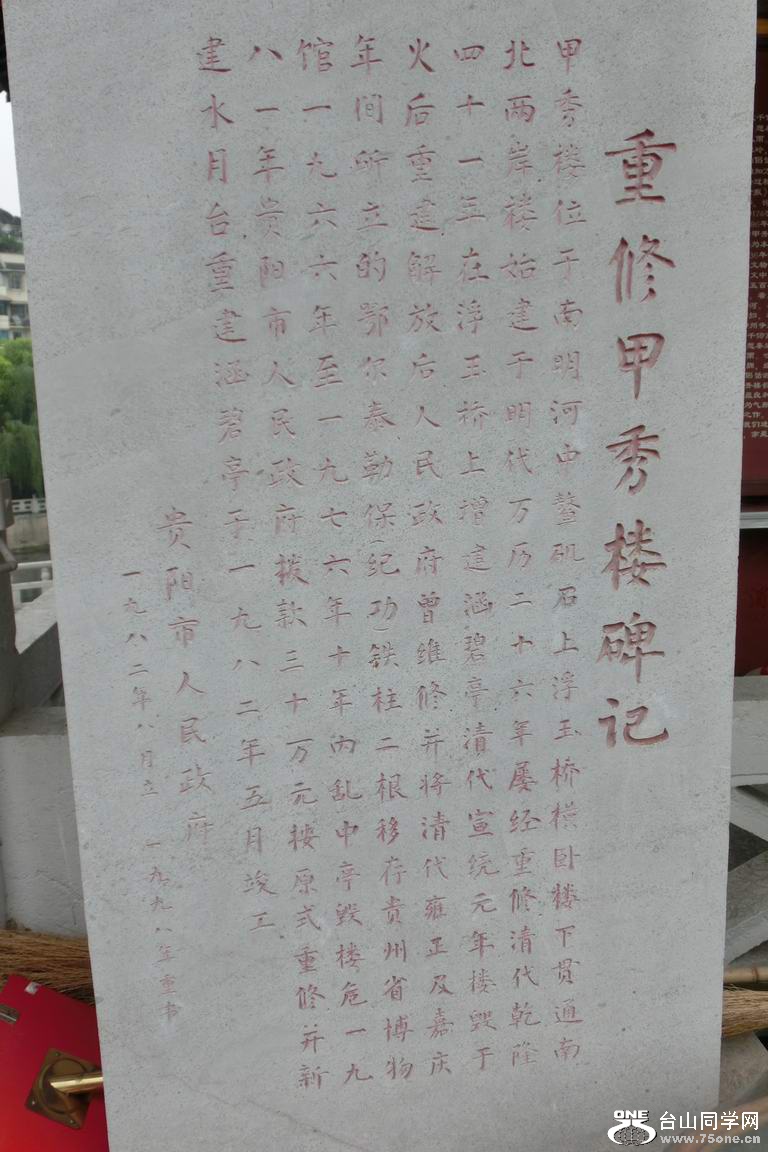 重修甲秀楼碑记
甲秀楼位于南明河中鳌矶石上浮玉桥横卧楼下贯通南
北两岸楼始建于明代万历二十六年屡经重修清代乾隆
四十一年在浮玉桥上增建涵碧亭清代宣统元年楼毁于
火后重建解放后人民政府曾维修并将清代雍正及嘉庆
年间所立的鄂尔泰勒保(纪功)铁柱二根移存贵州省博物
馆一九六六年至一九七六年十年内乱中亭毁楼危一九
八一年贵阳市人民政府拨款三十万元按原式重修并新
建水月台重建涵碧亭于一九八二年五月竣工
贵阳市人民政府
一九八二年八月立 一九九八年重书
ONE 台山同学网
www.75one.cn